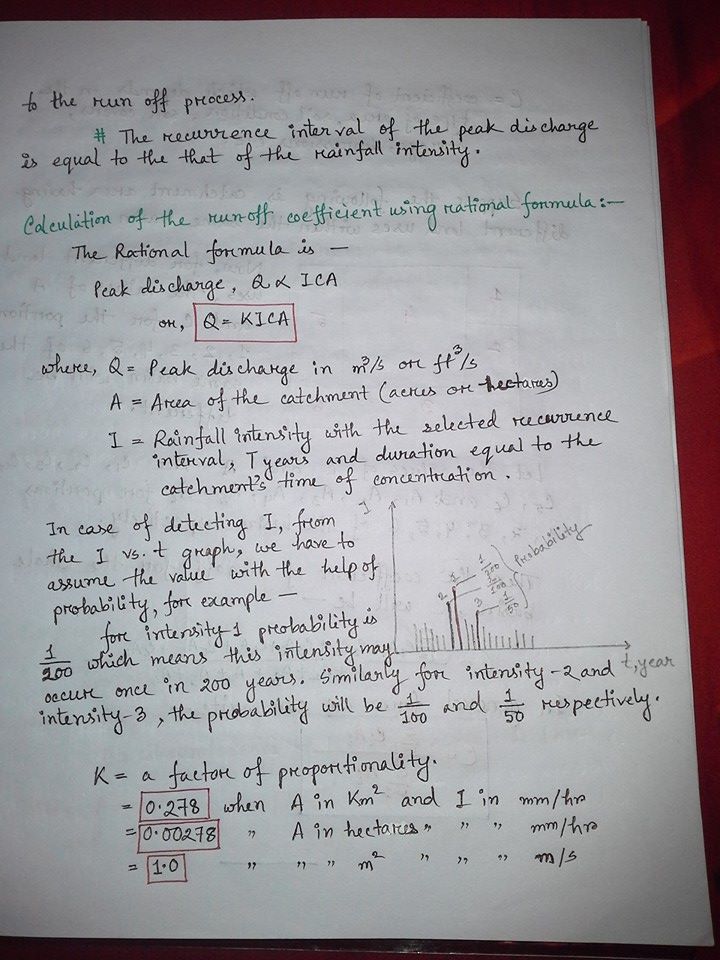 to the run off process.
# The recurrence interval of the peak discharge
is equal to the that of the rainfall intensity.
Calculation of the run-off coefficient using rational formula :—
The Rational formula is —
Peak discharge, Q ∝ ICA
or, Q = KICA
where, Q = Peak discharge in m³/s or ft³/s
A = Area of the catchment (acres or hectares)
I = Rainfall intensity with the selected recurrence
interval, T years and duration equal to the
catchment's time of concentration.
In case of detecting I, from
the I vs. t graph, we have to
assume the value with the help of
probability, for example —
for intensity-1 probability is
1/200 which means this intensity may
occur once in 200 years. Similarly for intensity-2 and
intensity-3, the probability will be 1/100 and 1/50 respectively.
I
2 1 3
1/200
1/100
1/50
Probability
t, year
K = a factor of proportionality.
= 0.278 when A in Km² and I in mm/hr
= 0.00278 " A in hectares " " " mm/hr
= 1.0 " " " m² " " " m/s